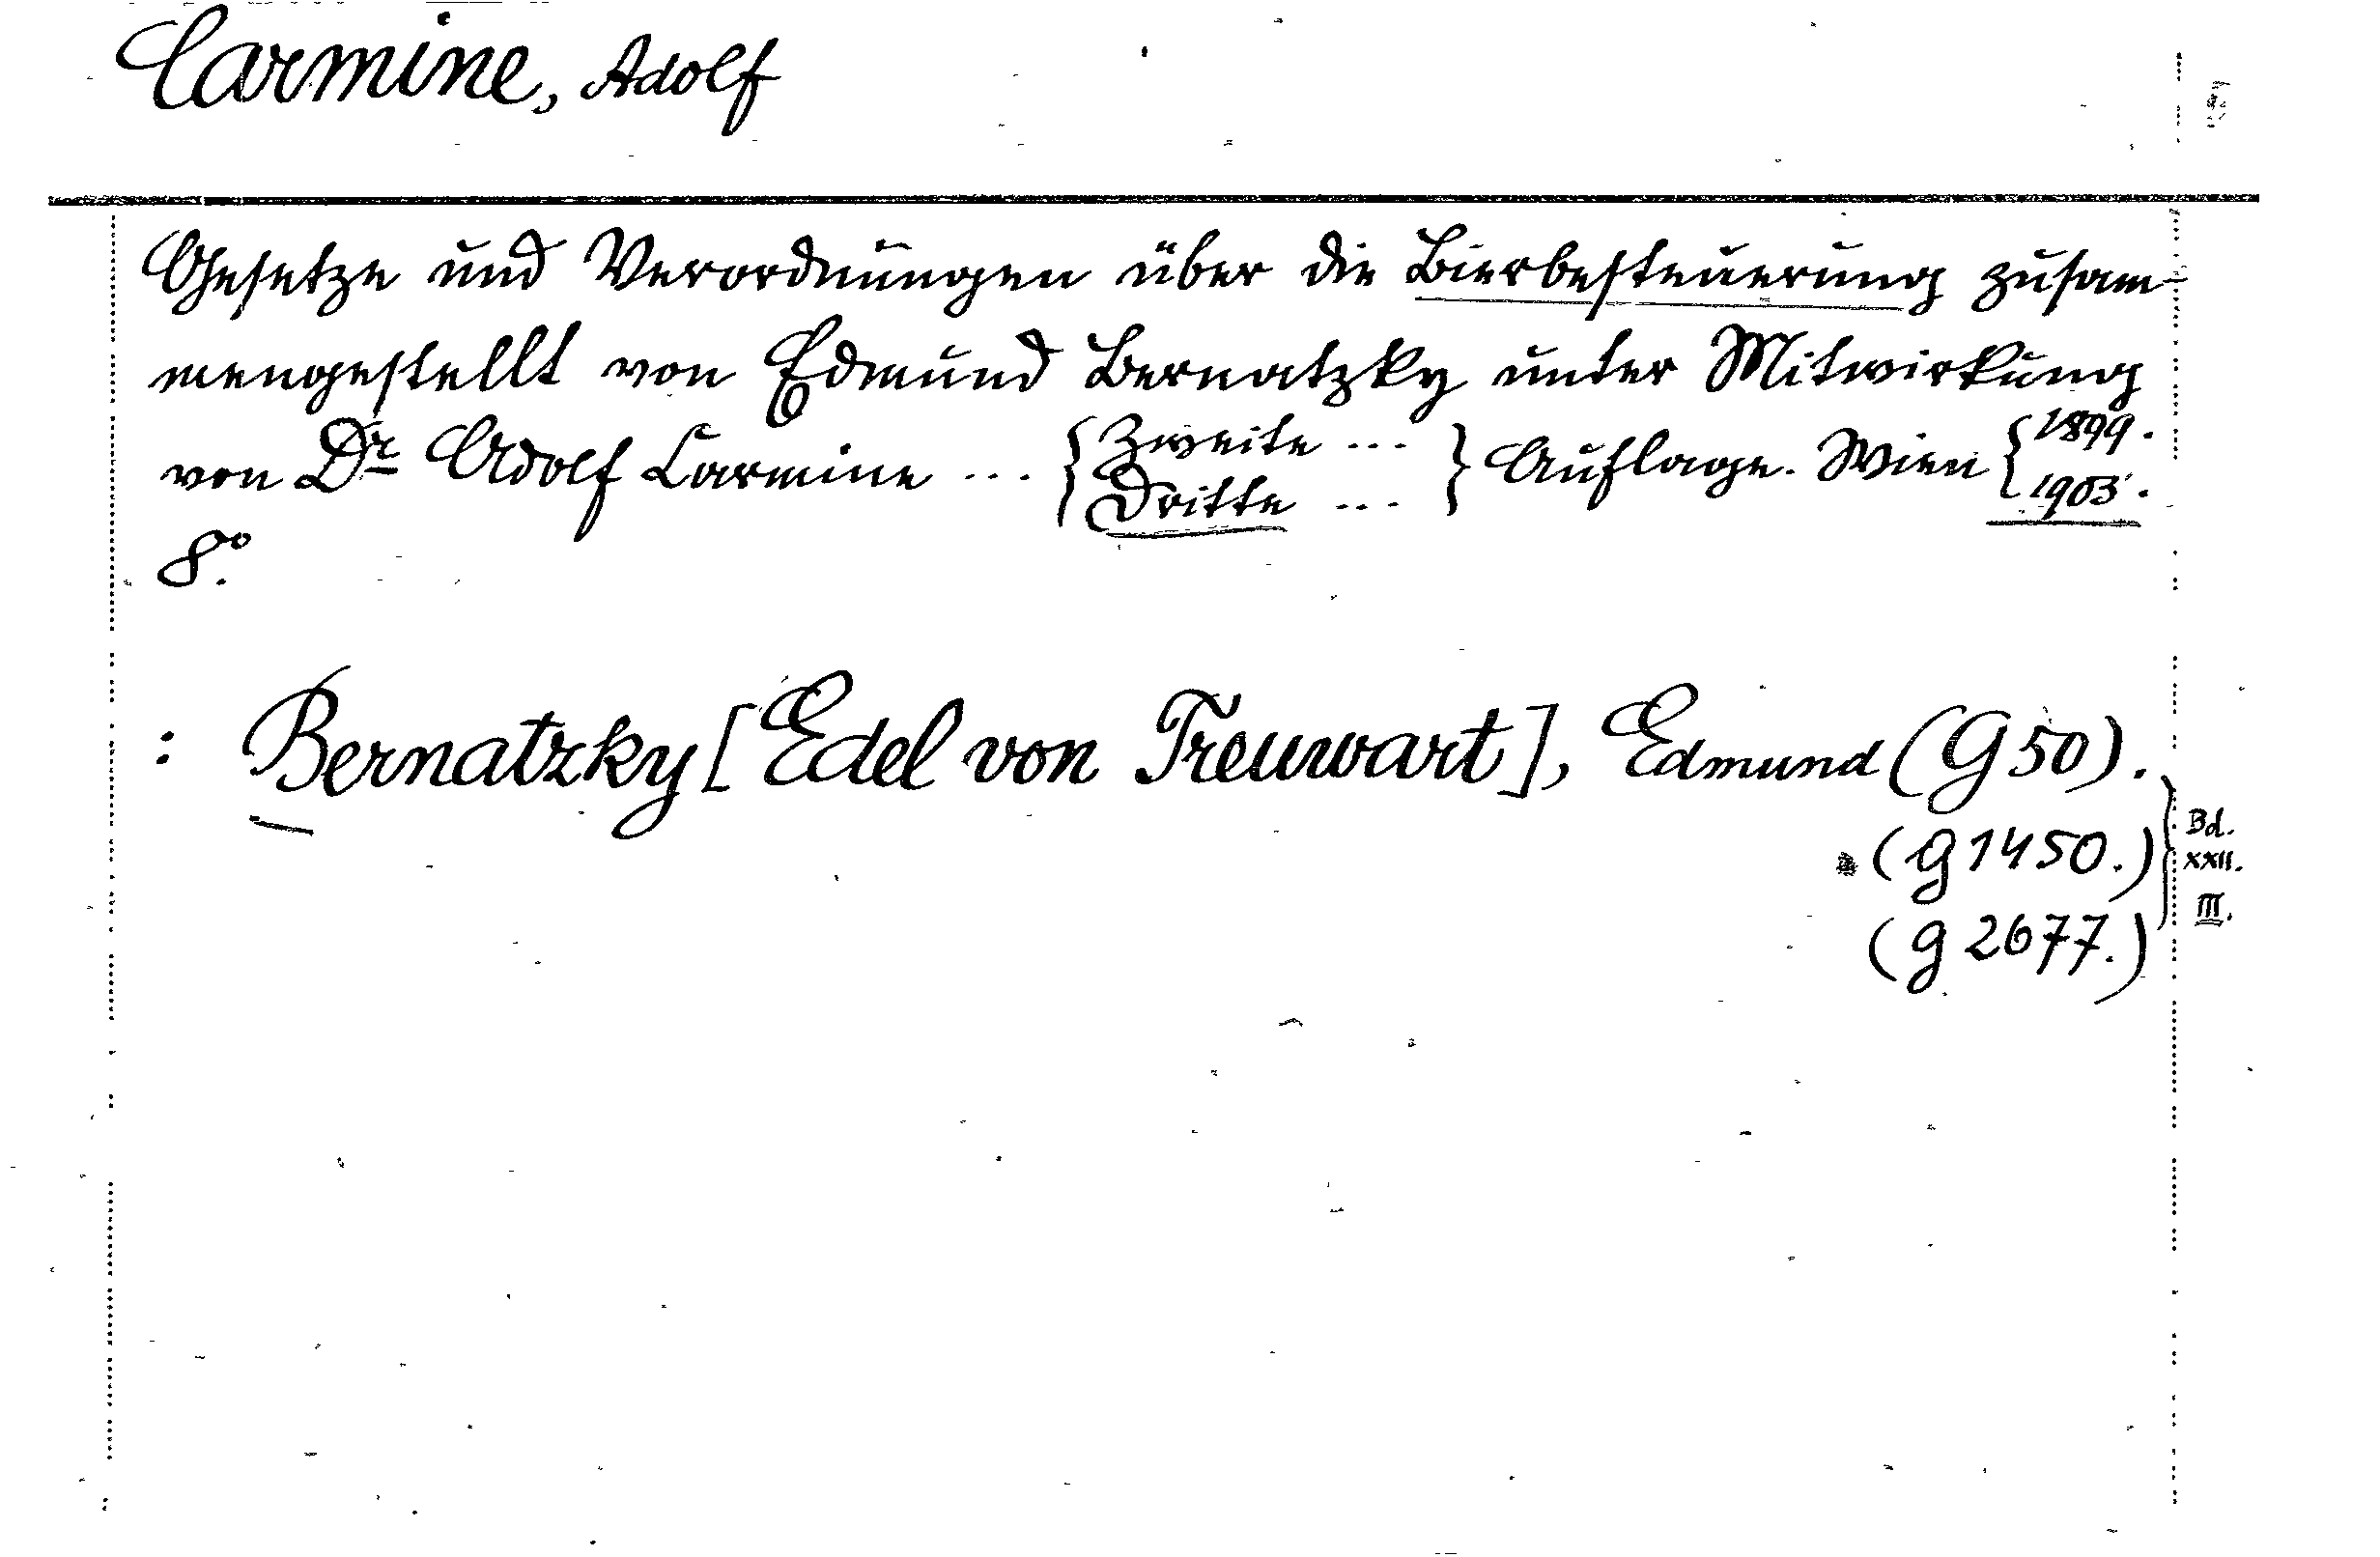 Carmine, Adolf
Gesetze und Verordnungen über die Bierbesteuerung zusam-
mengestellt von Edmund Bernatzky unter Mitwirkung
von Dr Adolf Carmine ... { Zweite ... } Auflage. Wien { 1899.
Dritte ... 1903.
8.°
: Bernatzky [Edel von Treuwart], Edmund (G 50).
(G 1450.) } Bd. XXII.
(G 2677.) III.